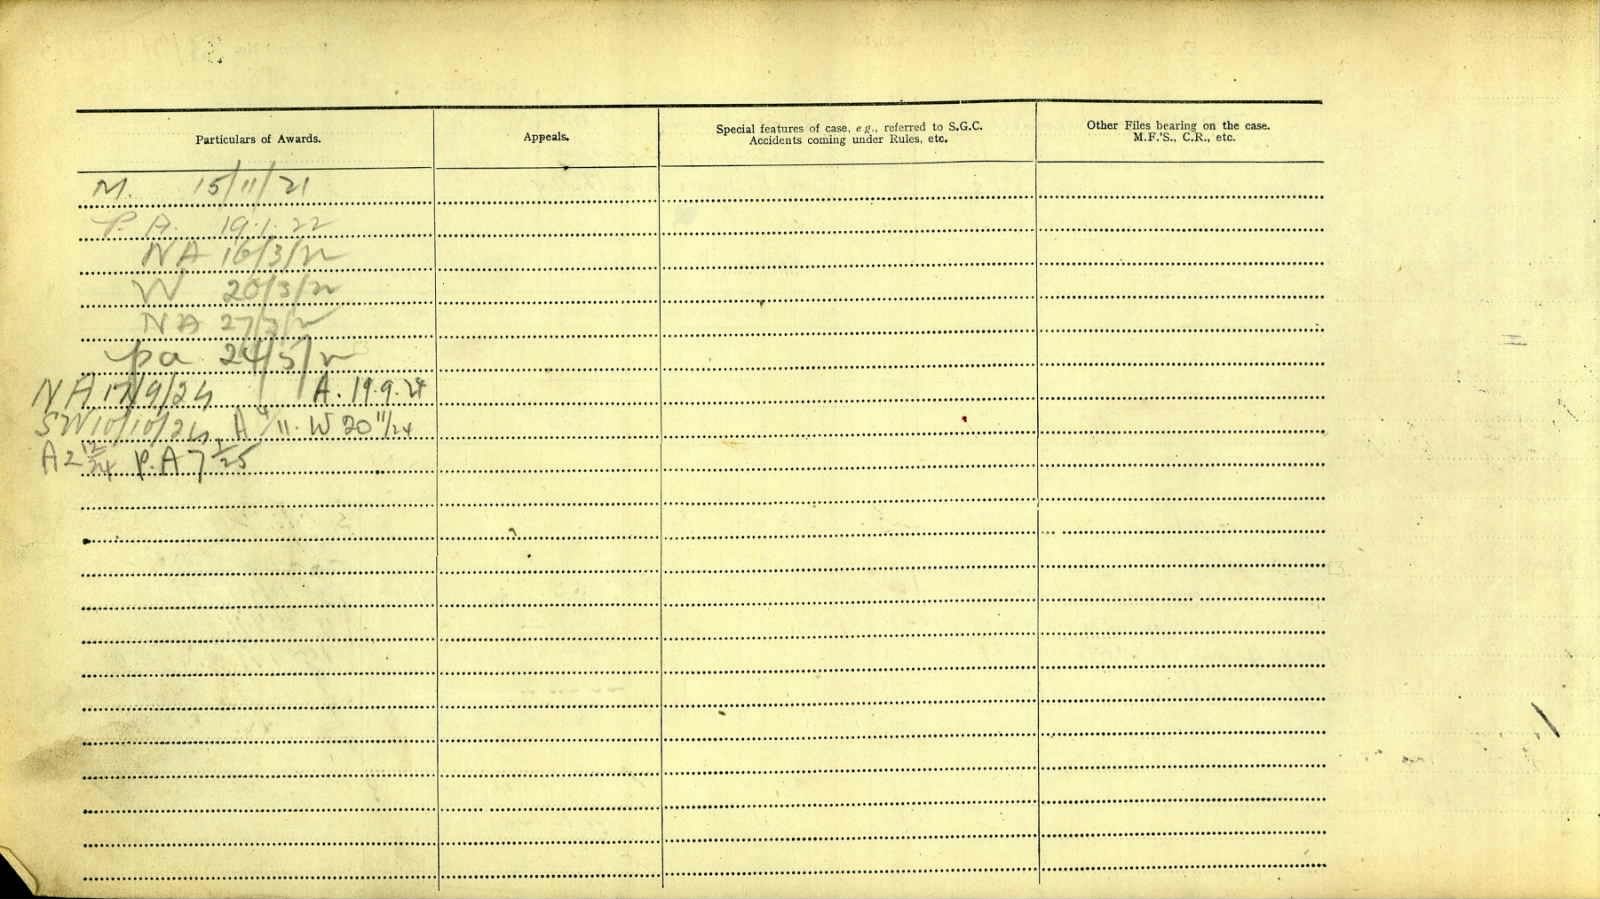 Particulars of Awards.
Appeals.
Special features of case, e g., referred to S.G.C.
Accidents coming under Rules, etc.
Other Files bearing on the case.
M.F.'S., C.R., etc.
M. 15/11/21
P. A. 19.1.22
NA 16/3/22
W 20/3/22
NA 27/3/22
pa 24/5/22
NA 17/9/24 A. 19.9.24
SW 10/10/24 A 4/11. W 20 11/24
A 2 12/24 P.A 7 1/25